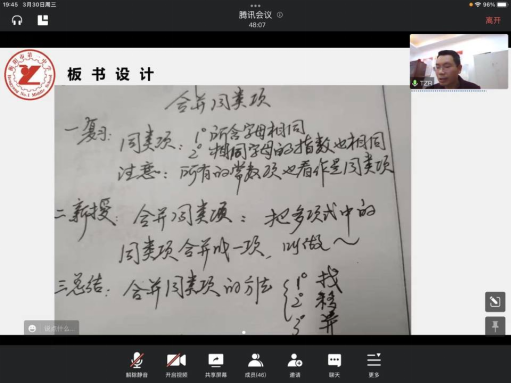 19:45 3月30日周三
96%
腾讯会议
48:07
离开
TZR
板书设计
合并同类项
一复习:
同类项: 1°所含字母相同
2°相同字母的指数也相同
注意: 所有的常数项也看作是同类项
二新授: 合并同类项: 把多项式中的
同类项合并成一项, 叫做~
三总结: 合并同类项的方法 1°找
2°移
3°并
说点什么...
解除静音
开启视频
共享屏幕
成员(46)
邀请
聊天
更多